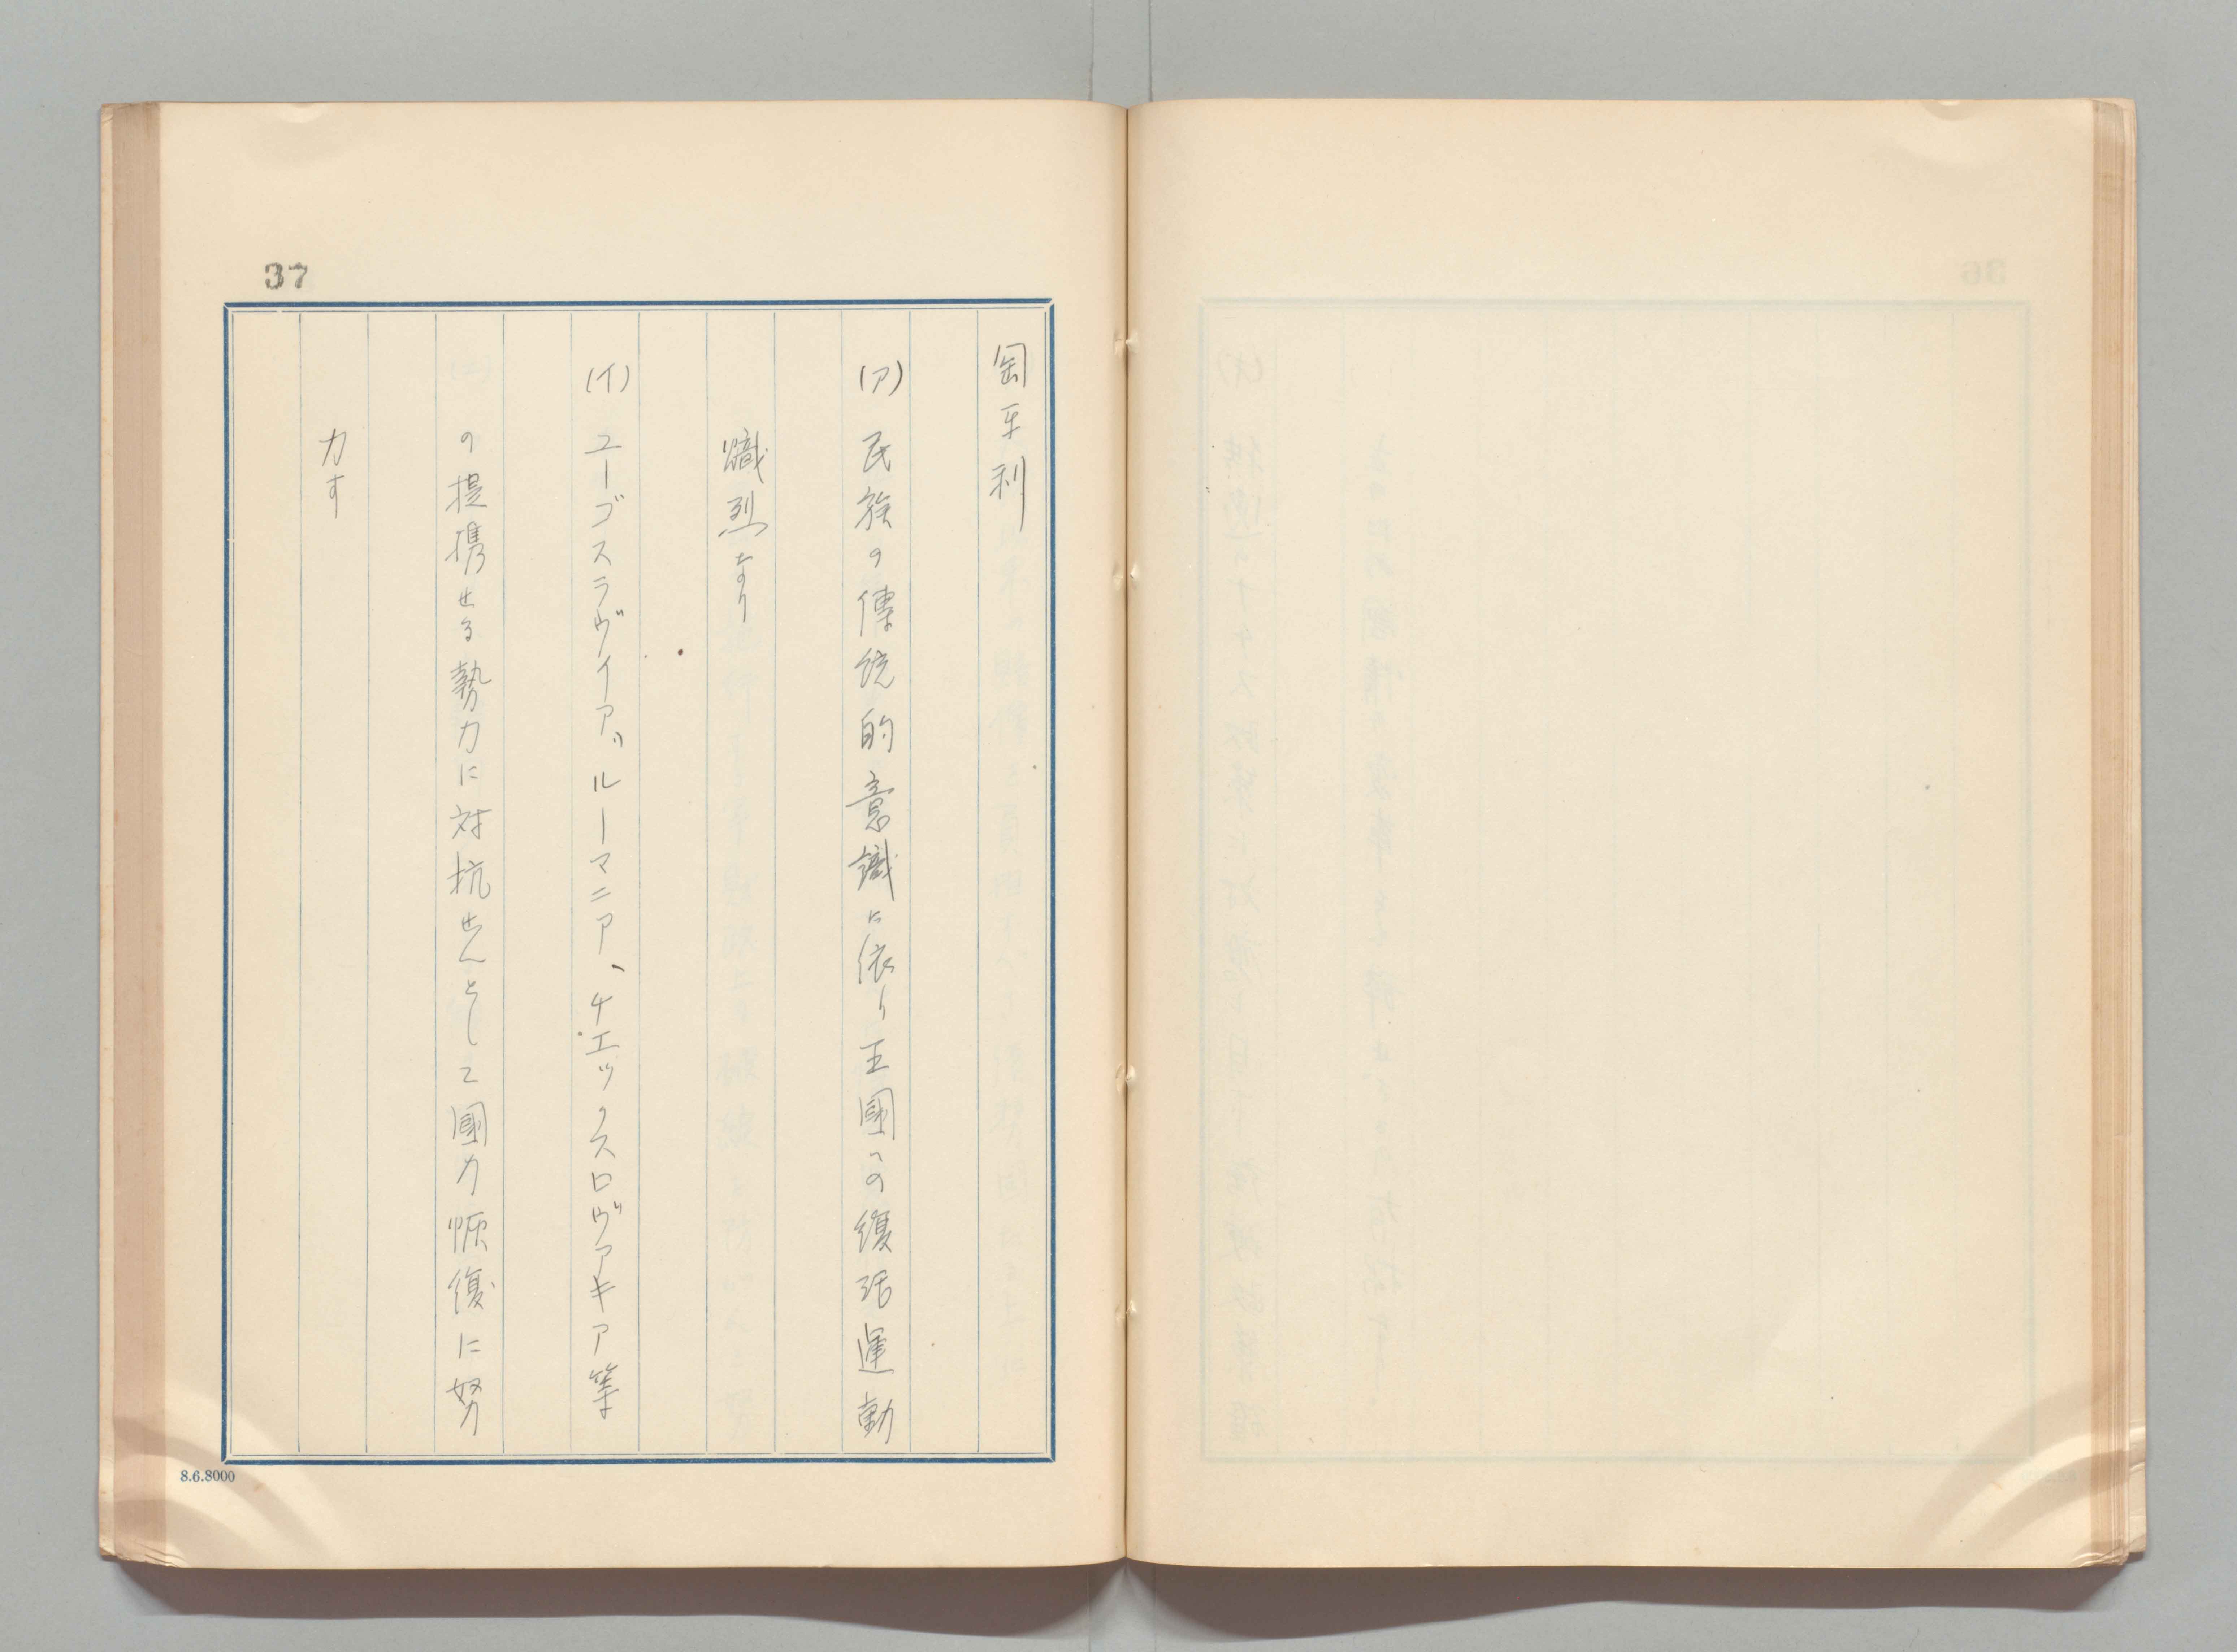 37
匈牙利
(ア)民族の傳统的意識に依り王國への復活運動
熾烈なり
(イ)ユーゴスラヴイア、ルーマニア、チエックスロヴアキア等
の提携せる勢力に対抗せんとして國力恢復に努
力す
8.6.8000